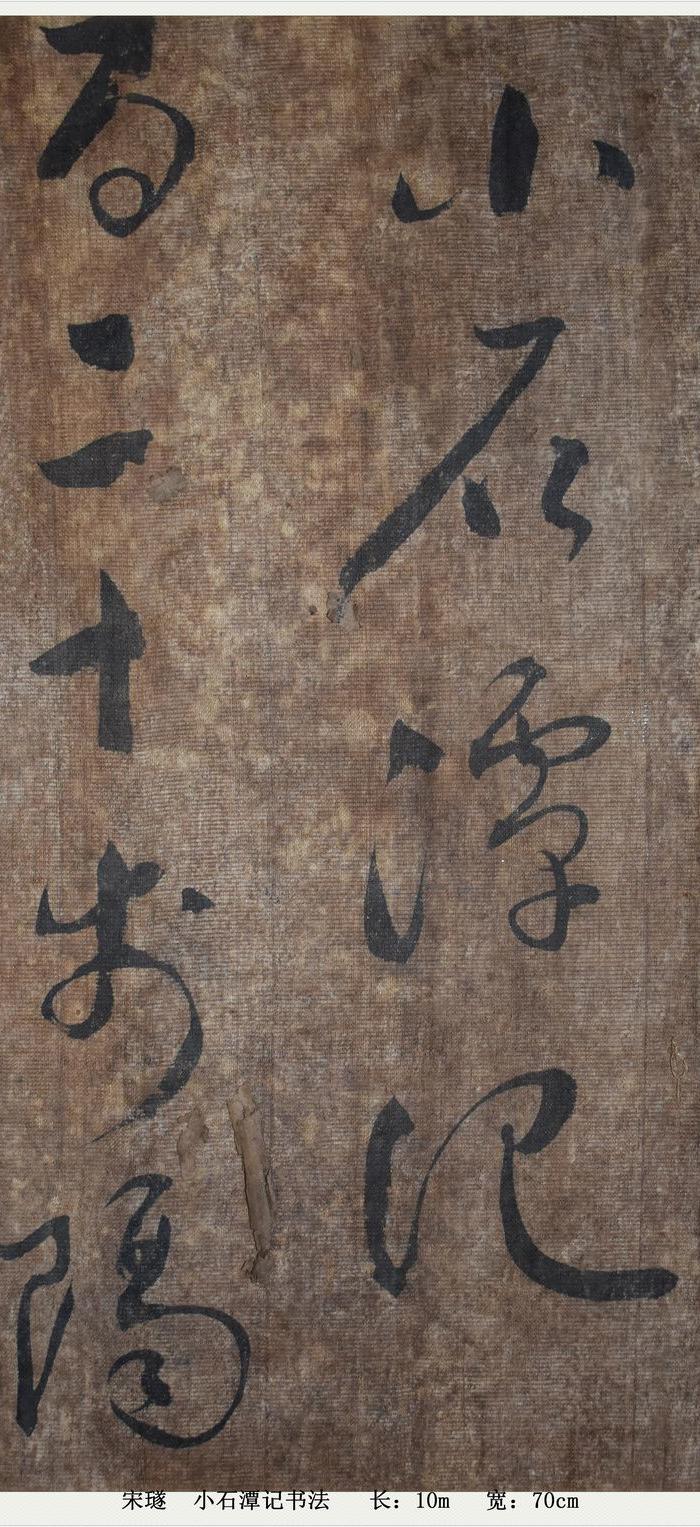 小石潭記
百二十步隔
宋璲 小石潭记书法 长：10m 宽：70cm